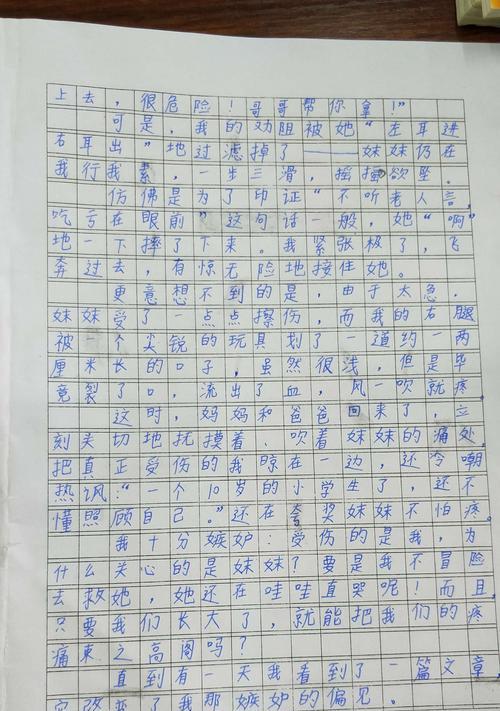 上去，很危险！哥哥帮你拿！”
可是，我的劝阻被她“左耳进
右耳出”地过滤掉了——妹妹仍在
我行我素，一步三滑，摇摇欲坠。
仿佛是为了印证“不听老人言，
吃亏在眼前”这句话一般，她“啊”
地一下摔了下来。我紧张极了，飞
奔过去，有惊无险地接住她。
更意想不到的是，由于太急，
妹妹受了一点点擦伤，而我的右腿
被一个尖锐的玩具划了一道约一两
厘米长的口子，虽然很浅，但是毕
竟裂了口，流出了血，风一吹就疼。
这时，妈妈和爸爸回来了，立
刻关切地抚摸着、吹着妹妹的痛处，
把真正受伤的我晾在一边，还冷嘲
热讽：“一个10岁的小学生了，还不
懂照顾自己。”还在夸奖妹妹不怕疼。
我十分嫉妒：受伤的是我，为
什么关心的是妹妹？要是我不冒险
去救她，她还在哇哇直哭呢！而且，
只要我们长大了，就能把我们的疼
痛束之高阁吗？
直到有一天我看到了一篇文章，
它改变了我那嫉妒的偏见。